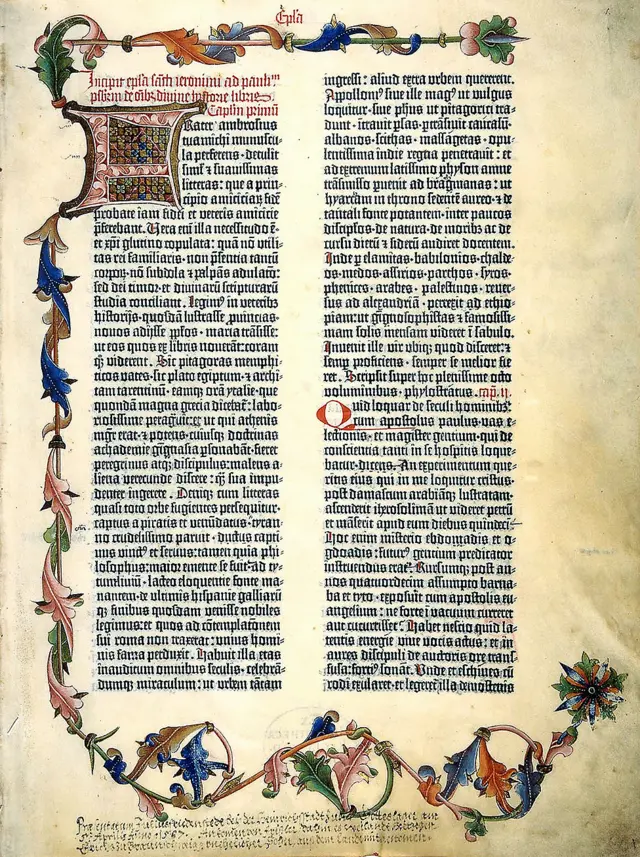 Epl̃a
Incipit epl̃a sancti ieronimi ad paulinū
presbiterum de omnibus divine historie libris.
Capitulū primū.
Frater ambrosius
tua michi munuscu-
la perferens. detulit
simĺ et suavissimas
litteras: que a prin-
cipio amicicia₄ fidē
probate iam fidei et veteris amicicie
p̄ferebant. Vera eni illa necessitudo ē.
et xp̄i glutino copulata: quam nō utili-
tas rei familiaris. non p̄sentia tantū
corpo₄. nō subdola et palpās adulacō.
sed dei timor. et divina₄ scriptura₄
studia conciliant. Legim⁹ in veterib⁹
historijs. quosdā lustrasse ꝓvincias.
novos adijsse ppl̃os. maria trāsisse.
ut eos quos ex libris noverāt: coram
q̄ viderent. Sic pitagoras memphi-
ticos vates. sic plato egiptum. et archi-
tam tarentinū. eamq₃ oram ytalie. que
quondā magna grecia diceba₄: labo-
riosissime peragravit. ut qui athenis
mgr̄ erat. et potens. cuiusq₃ doctrinas
achademie gignasia ꝑsonabāt. fieret
peregrinus atq₃ discipulus: malens a-
liena verecunde discere: q̄ sua impu-
denter ingerere. Deniq₃ cum litteras
quasi toto orbe fugientes persequit̄.
captus a piratis et venūdatus. tyran-
no crudelissimo paruit. ductus capti-
vus vinct⁹ et servus: tamen quia phi-
losophus: maior emente se fuit: ad ty-
tumlivium. lacteo eloquentie fonte ma-
nantem. de ultimis hispanie galliarūq₃
finibus quosdam venisse nobiles
legimus: et quos ad cōtemplatōem
sui roma non traxerat: unius homi-
nis fama perduxit. Habuit illa etas
inauditum omnibus seculis. celebrā-
dumq₃ miraculum: ut urbem tātam
ingressi: aliud extra urbem quererent.
Appollonī⁹ sive ille mag⁹ ut vulgus
loquitur. sive phūs ut pitagorici tra-
dunt. ītravit ꝑsas. ꝑtrāsivit caucasū.
albanos. scithas. massagetas. opu-
lentissima indie regna penetravit: et
ad extremum latissimo physon amne
trāsmisso ꝑvenit ad bragmanas: ut
hyarcam in throno sedentē aureo. et de
tantali fonte potantem. inter paucos
discipl̃os. de natura. de moribus ac de
cursu dierū et siderū audiret docentem.
Inde ꝑ elamitas. babilonios. chalde-
os. medos. assirios. parthos. syros.
phenices. arabes. palestinos. rever-
sus ad alexandriā. perrexit ad ethio-
piam: ut gignosophistas et famosissi-
mam solis mensam videret ī sabulo.
Invenit ille vir ubiq₃ quod disceret: et
semꝑ proficiens. semper se melior fie-
ret. Scripsit super hoc plenissime octo
voluminibus. phylostratus. Cap. II.
Quid loquar de seculi hominib⁹.
cum apostolus paulus. vas e-
lectionis. et magister gentium. qui de
conscientia tanti in se hospitis loque-
batur. dicens. An experimentum que-
ritis eius qui in me loquitur cristus.
post damascum arabiāq₃ lustratam.
ascenderit iherosolimā ut videret petrū
et māserit apud eum diebus quindeci.
Hoc enim misterio ebdomadis et o-
gdoadis: futur⁹ gentium predicator
instruendus erat. Rursumq₃ post an-
nos quatuordecim assumpto barna-
ba et tyto. exposuit cum apostolis eu-
angelium: ne forte ī vacuum curreret
aut cucurrisset. Habet nescio quid la-
tentis energie vive vocis actus: et in
aures discipuli de auctoris ore trans-
fusa: forti⁹ sonat. Unde et eschines cū
rodi exularet. et legeret illa demostenis